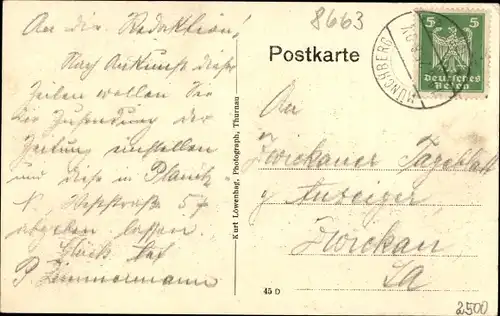 An die Redaktion!
Nach Ankunft dieser
Zeilen wollen Sie
die Zusendung der
Zeitung einstellen
und diese in Planitz
Weststraße 57
abgeben lassen.
P. Zimmermann
Kurt Löwenhag, Photograph, Thurnau
8663
Postkarte
MÜNCHBERG
5 5
Deutsches
Reich
An
Zwickauer Tageblatt
Anzeiger
Zwickau
Sa
45 D
2500